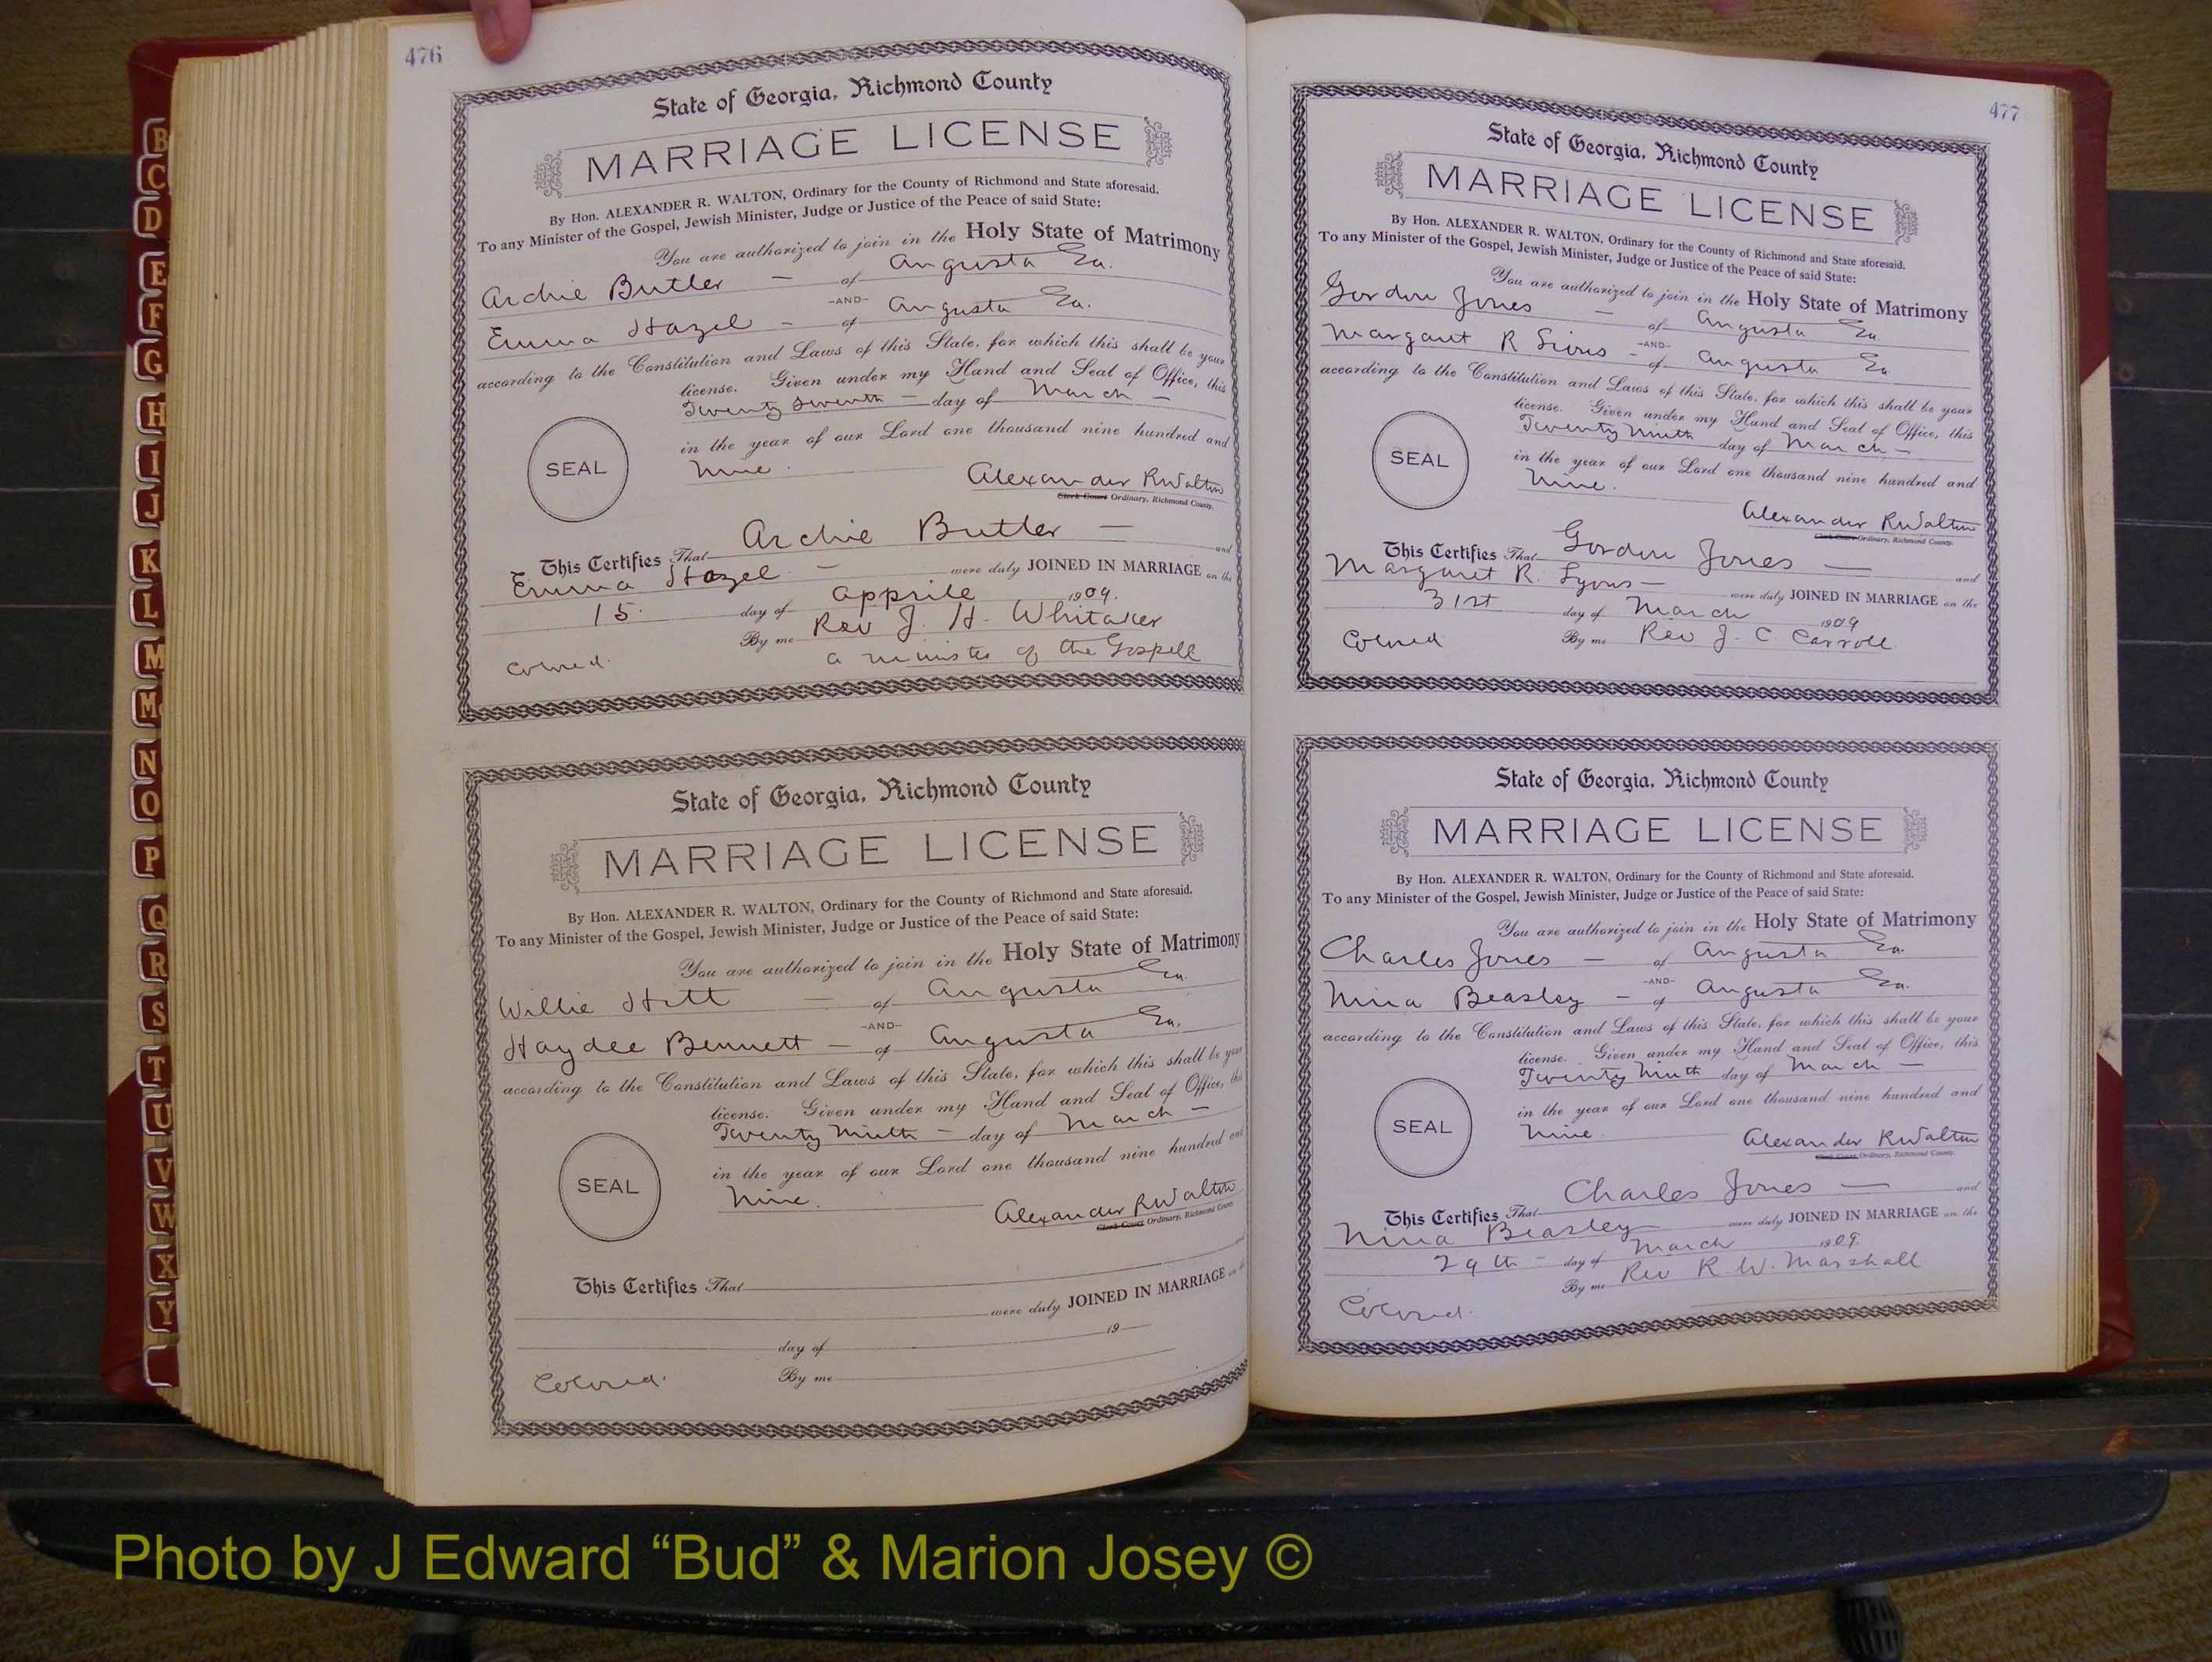 B
C
D
E
F
G
H
I
J
K
L
M
Mc
N
O
P
Q
R
S
T
U
V
W
X
Y
476
State of Georgia, Richmond County
MARRIAGE LICENSE
By Hon. ALEXANDER R. WALTON, Ordinary for the County of Richmond and State aforesaid.
To any Minister of the Gospel, Jewish Minister, Judge or Justice of the Peace of said State:
You are authorized to join in the Holy State of Matrimony
Archie Butler — of Augusta Ga.
-AND-
Emma Hazel - of Augusta Ga.
according to the Constitution and Laws of this State, for which this shall be your
license. Given under my Hand and Seal of Office, this
Twenty Seventh — day of March —
in the year of our Lord one thousand nine hundred and
SEAL
Nine.
Alexander R Walton
Clerk Court Ordinary, Richmond County.
This Certifies That Archie Butler — and
Emma Hazel. — were duly JOINED IN MARRIAGE on the
15. day of apprile 1909.
By me Rev J. H. Whitaker
Colored. a minister of the Gospell
State of Georgia, Richmond County
MARRIAGE LICENSE
By Hon. ALEXANDER R. WALTON, Ordinary for the County of Richmond and State aforesaid.
To any Minister of the Gospel, Jewish Minister, Judge or Justice of the Peace of said State:
You are authorized to join in the Holy State of Matrimony
Willie Hitt — of Augusta Ga.
-AND-
Haydee Bennett — of Augusta Ga.
according to the Constitution and Laws of this State, for which this shall be your
license. Given under my Hand and Seal of Office, this
Twenty Ninth — day of March —
in the year of our Lord one thousand nine hundred and
SEAL
Nine.
Alexander R Walton
Clerk Court Ordinary, Richmond County
This Certifies That and
were duly JOINED IN MARRIAGE on the
day of 19
Colored. By me
477
State of Georgia, Richmond County
MARRIAGE LICENSE
By Hon. ALEXANDER R. WALTON, Ordinary for the County of Richmond and State aforesaid.
To any Minister of the Gospel, Jewish Minister, Judge or Justice of the Peace of said State:
You are authorized to join in the Holy State of Matrimony
Gordon Jones — of Augusta Ga.
-AND-
Margaret R Lions - of Augusta Ga
according to the Constitution and Laws of this State, for which this shall be your
license. Given under my Hand and Seal of Office, this
Twenty Ninth day of March —
in the year of our Lord one thousand nine hundred and
SEAL
Nine.
Alexander R Walton
Clerk Court Ordinary, Richmond County.
This Certifies That Gordon Jones — and
Margaret R. Lyons — were duly JOINED IN MARRIAGE on the
31st day of March 1909
Colored By me Rev J. C Carroll.
State of Georgia, Richmond County
MARRIAGE LICENSE
By Hon. ALEXANDER R. WALTON, Ordinary for the County of Richmond and State aforesaid.
To any Minister of the Gospel, Jewish Minister, Judge or Justice of the Peace of said State:
You are authorized to join in the Holy State of Matrimony
Charles Jones — of Augusta Ga.
-AND-
Nina Beasley - of Augusta Ga.
according to the Constitution and Laws of this State, for which this shall be your
license. Given under my Hand and Seal of Office, this
Twenty Ninth day of March —
in the year of our Lord one thousand nine hundred and
SEAL
Nine.
Alexander R Walton
Clerk Court Ordinary, Richmond County.
This Certifies That Charles Jones — and
Nina Beasley were duly JOINED IN MARRIAGE on the
29th - day of March 1909.
By me Rev R. W. Marshall
Colored.
Photo by J Edward “Bud” & Marion Josey ©